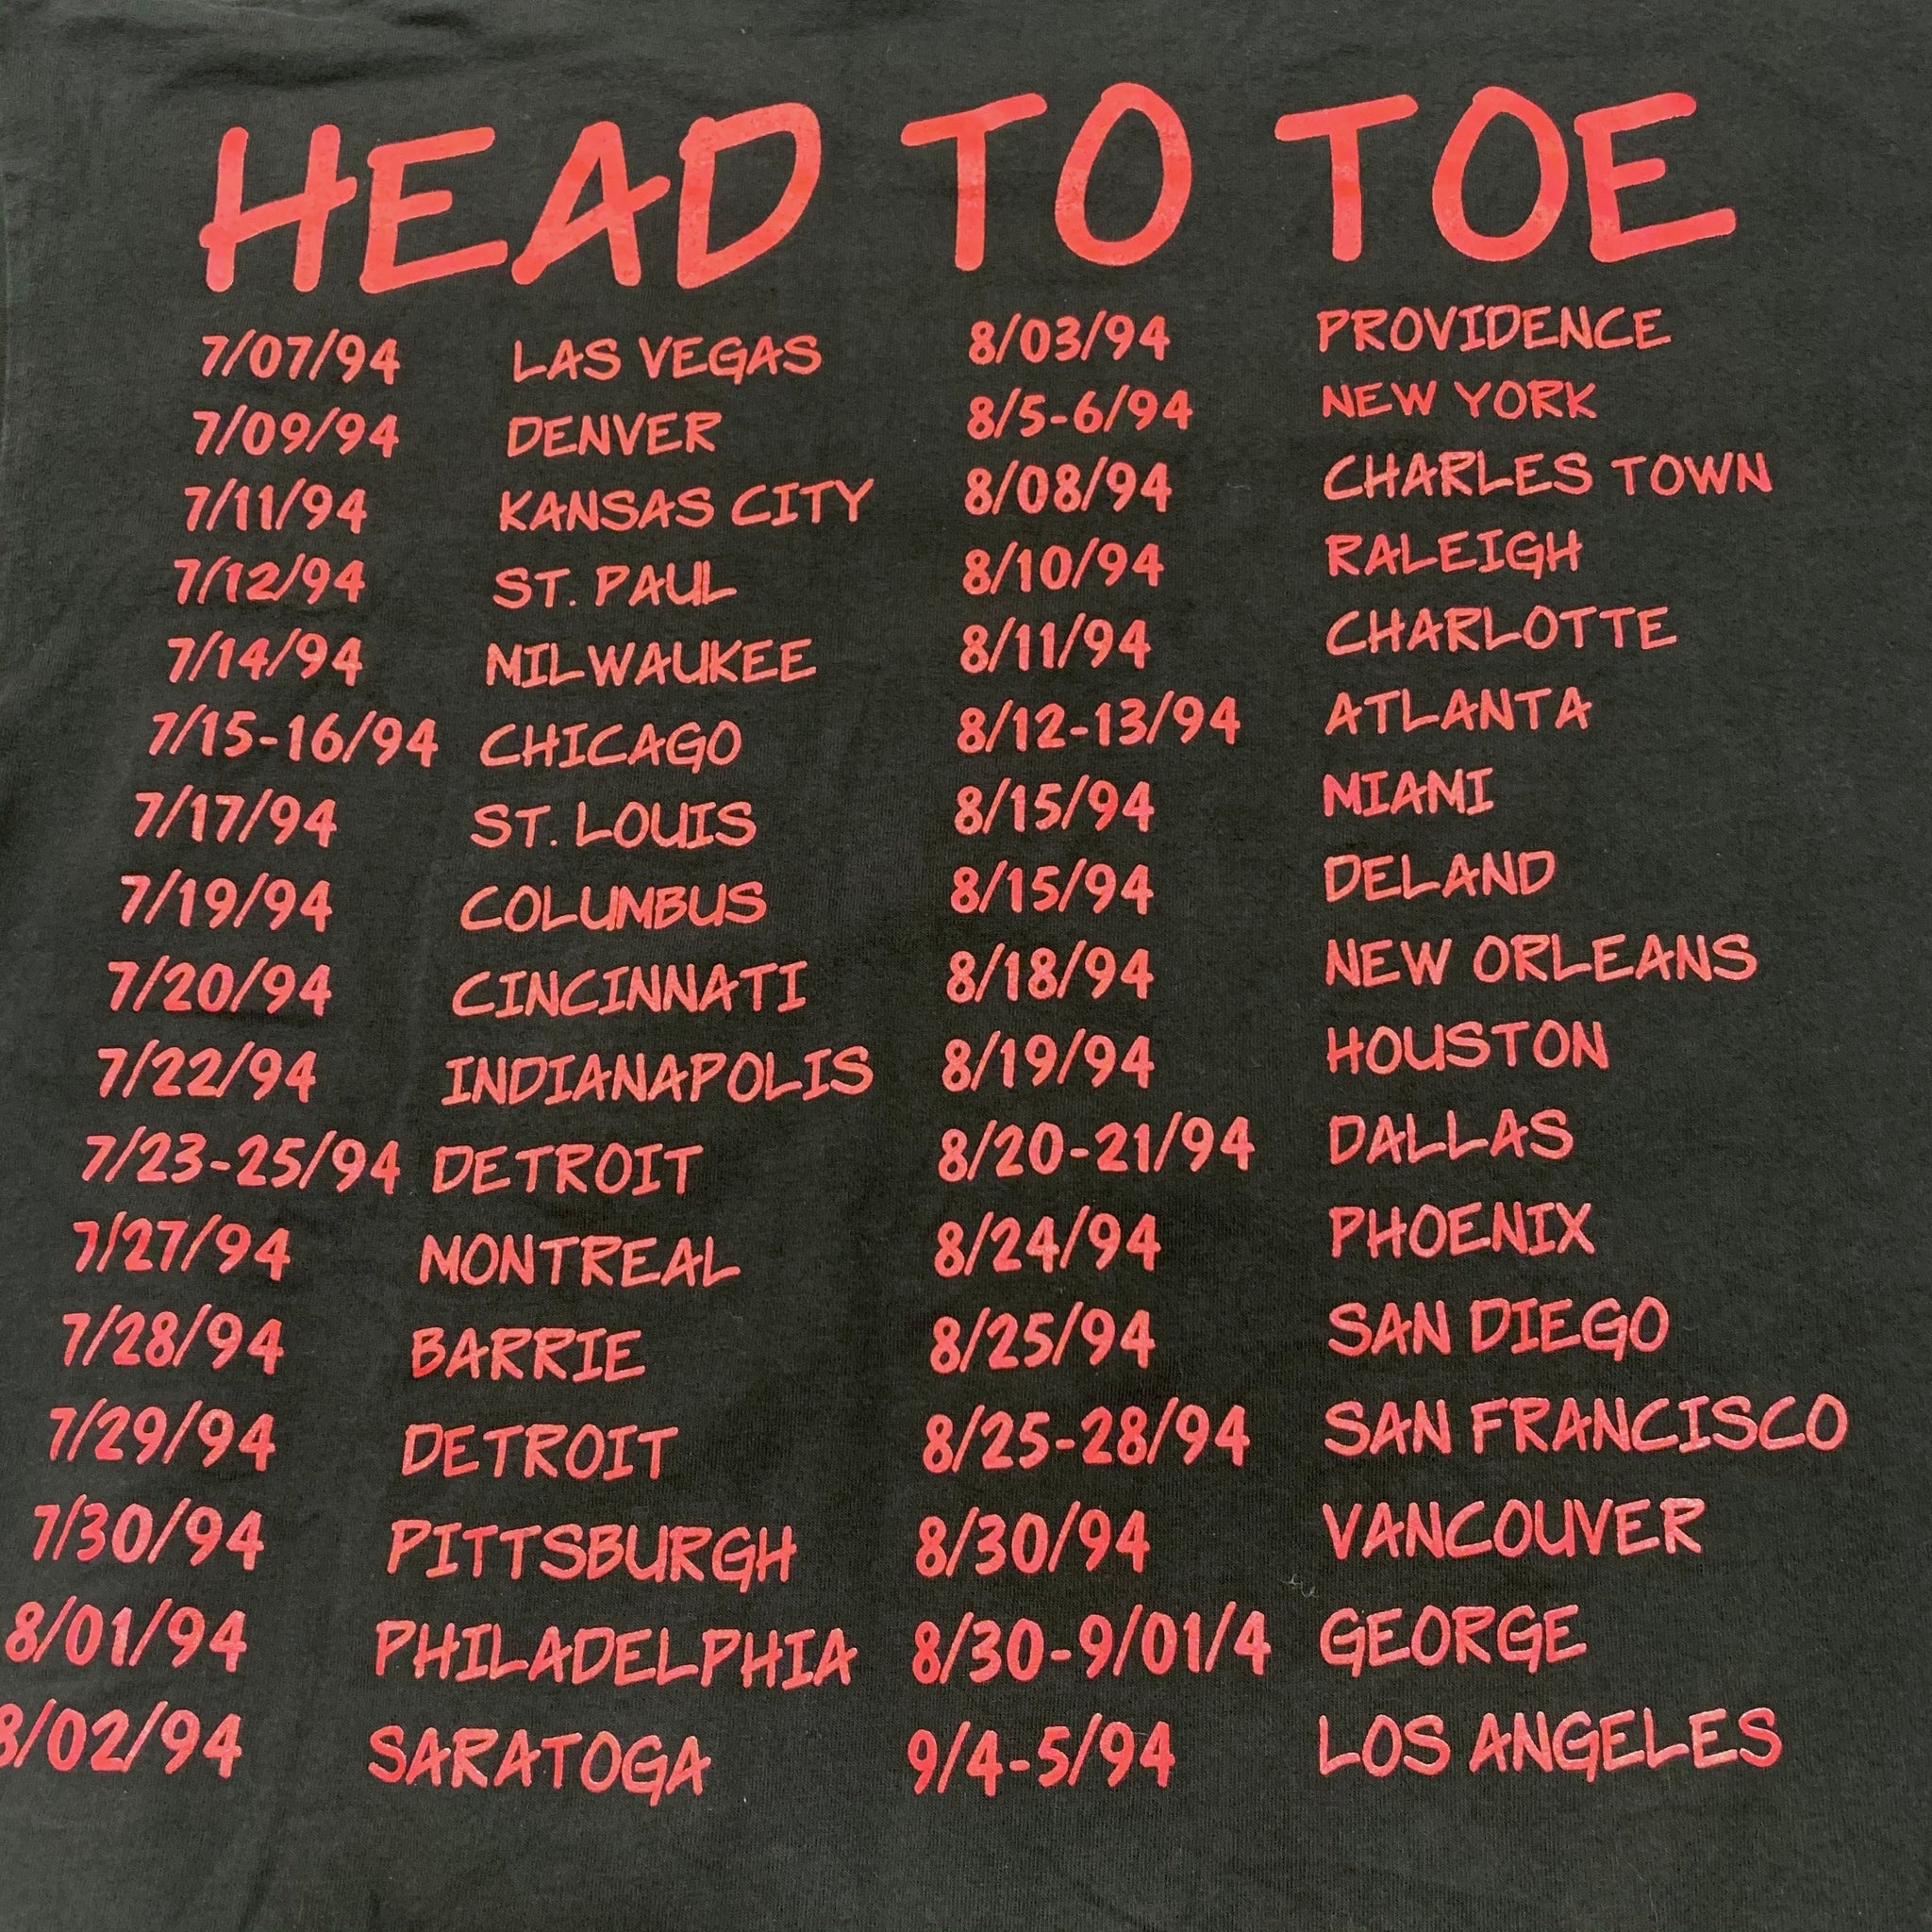 HEAD TO TOE
7/07/94 LAS VEGAS
7/09/94 DENVER
7/11/94 KANSAS CITY
7/12/94 ST. PAUL
7/14/94 MILWAUKEE
7/15-16/94 CHICAGO
7/17/94 ST. LOUIS
7/19/94 COLUMBUS
7/20/94 CINCINNATI
7/22/94 INDIANAPOLIS
7/23-25/94 DETROIT
7/27/94 MONTREAL
7/28/94 BARRIE
7/29/94 DETROIT
7/30/94 PITTSBURGH
8/01/94 PHILADELPHIA
8/02/94 SARATOGA
8/03/94 PROVIDENCE
8/5-6/94 NEW YORK
8/08/94 CHARLES TOWN
8/10/94 RALEIGH
8/11/94 CHARLOTTE
8/12-13/94 ATLANTA
8/15/94 MIAMI
8/15/94 DELAND
8/18/94 NEW ORLEANS
8/19/94 HOUSTON
8/20-21/94 DALLAS
8/24/94 PHOENIX
8/25/94 SAN DIEGO
8/25-28/94 SAN FRANCISCO
8/30/94 VANCOUVER
8/30-9/01/4 GEORGE
9/4-5/94 LOS ANGELES